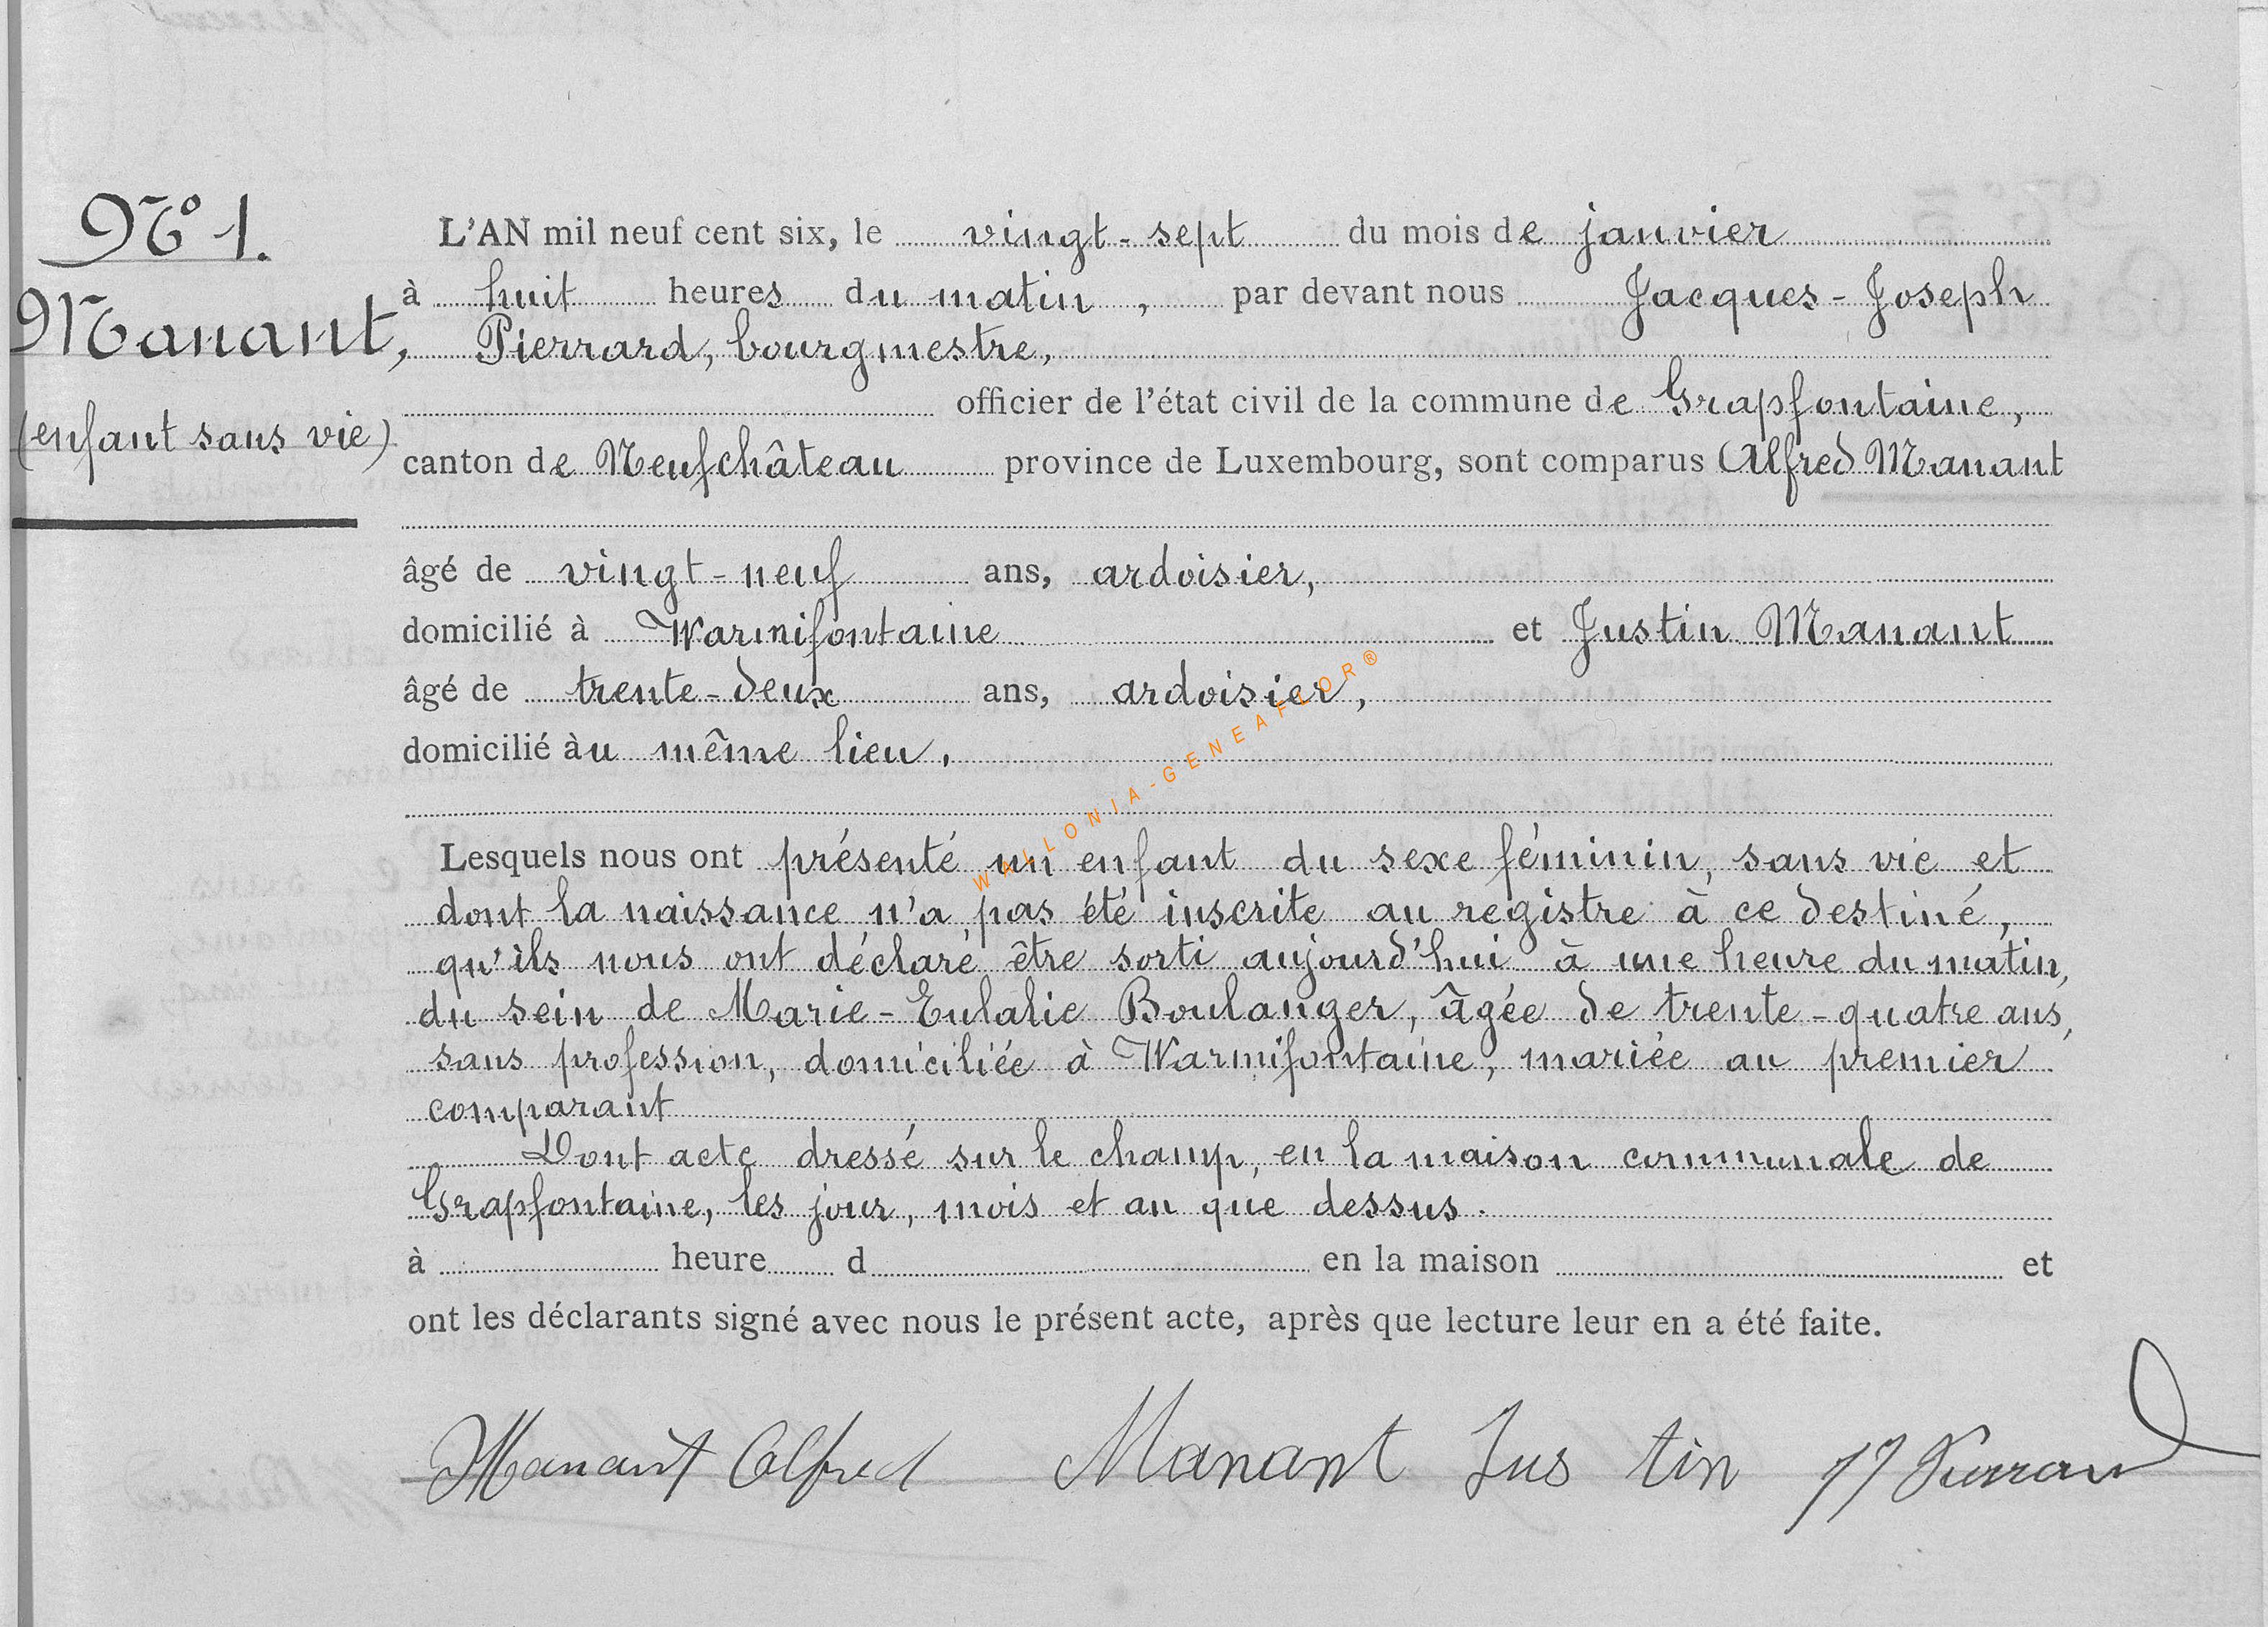 N° 1.
Manant,
(enfant sans vie)
L'AN mil neuf cent six, le vingt-sept du mois de janvier
à huit heures du matin, par devant nous Jacques-Joseph
Pierrard, bourgmestre,
officier de l'état civil de la commune de Grapfontaine,
canton de Neufchâteau province de Luxembourg, sont comparus Alfred Manant
âgé de vingt-neuf ans, ardoisier,
domicilié à Warmifontaine et Justin Manant
âgé de trente-deux ans, ardoisier,
domicilié àu même lieu.
Lesquels nous ont présenté un enfant du sexe féminin, sans vie et
dont la naissance n'a pas été inscrite au registre à ce destiné,
qu'ils nous ont déclaré être sorti aujourd'hui à une heure du matin,
du sein de Marie-Eulalie Boulanger, âgée de trente-quatre ans,
sans profession, domiciliée à Warmifontaine, mariée au premier
comparant
Dont acte dressé sur le champ, en la maison communale de
Grapfontaine, les jour, mois et an que dessus.
à heure d en la maison et
ont les déclarants signé avec nous le présent acte, après que lecture leur en a été faite.
Manant Alfred Manant Jus tin JJ Pierrard
WALLONIA-GENEAFLOR®